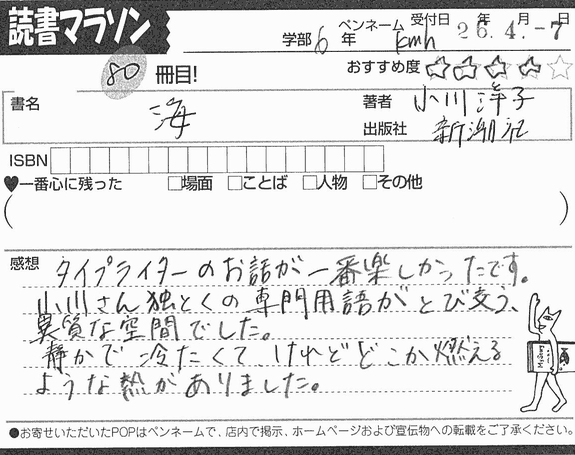 読書マラソン
学部 6 年 ペンネーム kmh 受付日 26年 4月 -7日
80 冊目! おすすめ度 ★★★★☆
書名 海 著者 小川洋子
出版社 新潮社
ISBN
♥一番心に残った □場面 □ことば □人物 □その他
( )
感想 タイプライターのお話が一番楽しかったです。
小川さん独とくの専門用語がとび交う、
異質な空間でした。
静かで冷たくて、けれどどこか燃える
ような熱がありました。
●お寄せいただいたPOPはペンネームで、店内で掲示、ホームページおよび宣伝物への転載をご了承ください。